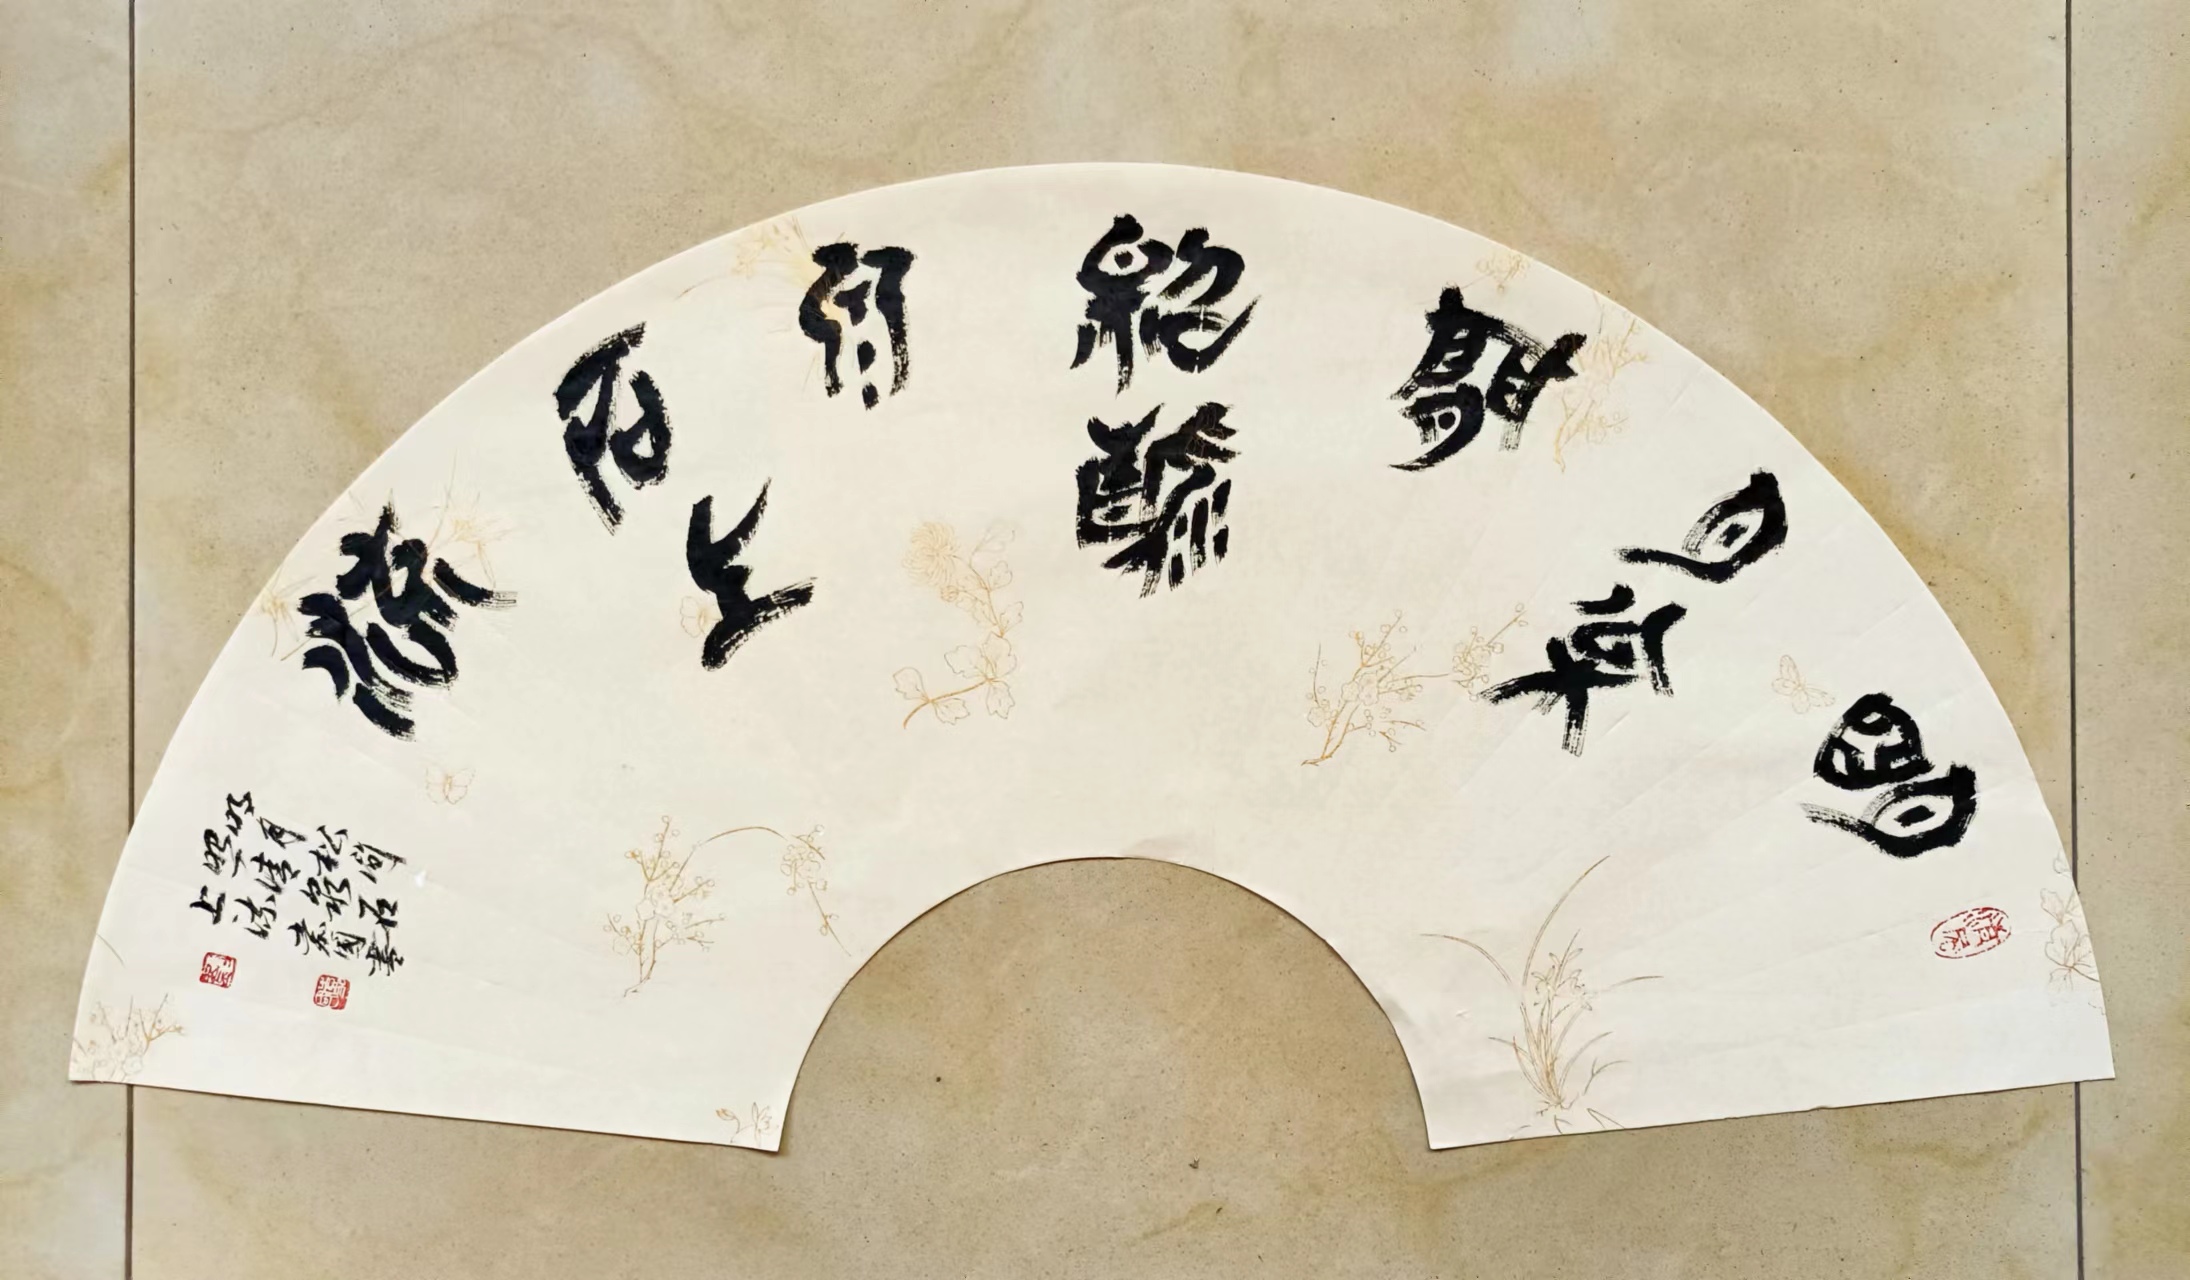 朙月松間照清泉石上流
明月松間
照清泉石
上流
書